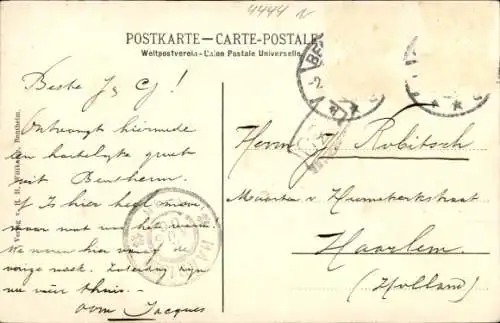 4444
POSTKARTE - CARTE-POSTALE
Weltpostverein - Union Postale Universelle
Beste J & G!
Ontvangt hiermede
een hartelijke groet
uit Bentheim.
Is hier heel mooi,
maar wat het warm
We waren hier vanaf de
vorige week. Zaterdag zijn
we weer thuis.-
oom Jacques
Verlag v. H. H. Bentheim.
BE
Herrn J. Robitsch
Maarten v. Heemskerkstraat
Haarlem.
(Holland)